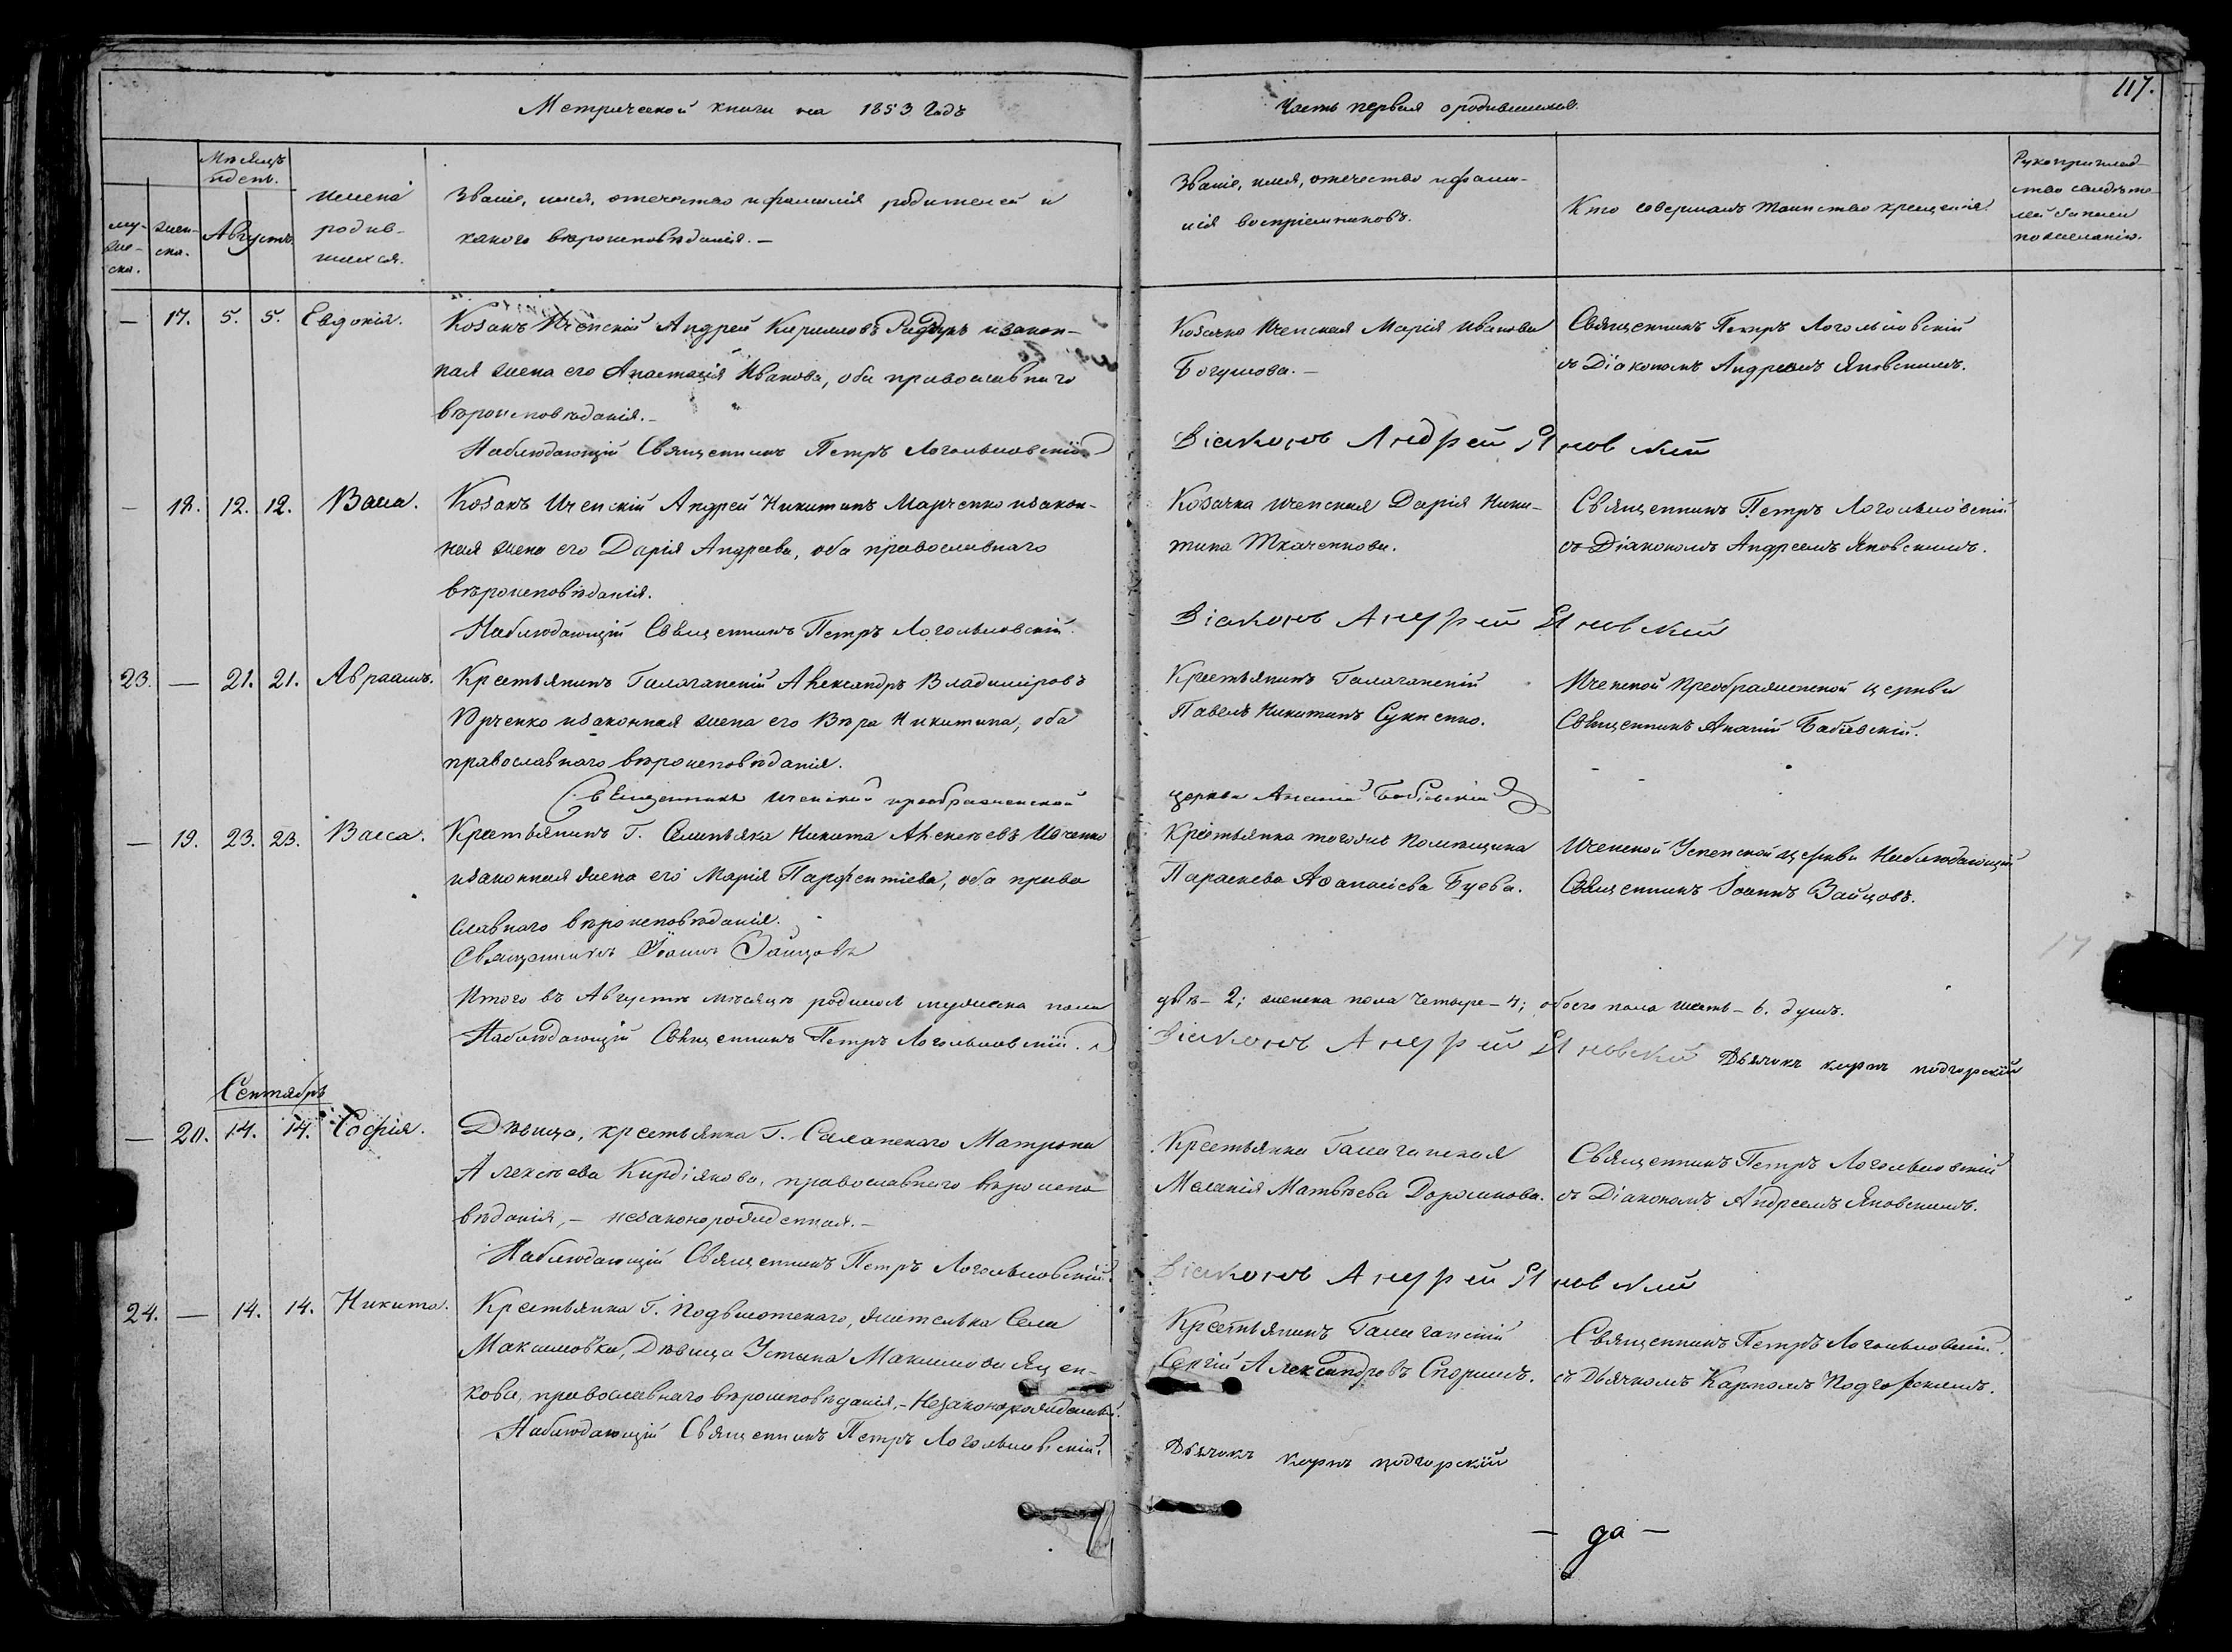 117.
Метрической книги на 1853 Годъ
Часть первая о родившихся.
Мѣсяцъ
и день.
Августъ
му-
же-
ска.
жен-
ска.
имена
родив-
шихся.
Званіе, имя, отечество и фамилія родителей и
какого вѣроисповѣданія. —
Званіе, имя, отечество и фами-
лія воспріемниковъ.
Кто совершалъ таинство крещенія.
Рукоприклад-
ство свидѣте-
лей записи
по желанію.
— 17. 5. 5. Евдокія.
Козакъ Иченскій Андрей Кириловъ и закон-
ная жена его Анастасія Иванова, оба православнаго
вѣроисповѣданія. —
Наблюдающій Священникъ Петръ Логольмовскій
Козачка Иченская Марія Иванова
Богушова. —
Священникъ Петръ Логольмовскій
съ Діакономъ Андреемъ Яновскимъ.
Діаконъ Андрей Яновский
— 18. 12. 12. Васса.
Козакъ Иченскій Андрей Никитинъ Марченко и закон-
ная жена его Дарія Андреева, оба православнаго
вѣроисповѣданія.
Наблюдающій Священникъ Петръ Логольмовскій.
Козачка Иченская Дарія Ники-
тина Ткаченкова.
Священникъ Петръ Логольмовскій
съ Діакономъ Андреемъ Яновскимъ.
Діаконъ Андрей Яновский
23. — 21. 21. Авраамъ.
Крестьянинъ Галаганскій Александръ Владиміровъ
Юрченко и законная жена его Вѣра Никитина, оба
православнаго вѣроисповѣданія.
Священникъ Иченской преображенской
Крестьянинъ Галаганскій
Павелъ Никитинъ Сукненко.
Иченской Преображенской церкви
Священникъ Ананій Бабѣвскій.
церкви Ананій Бабѣвскій
— 19. 23. 23. Васса.
Крестьянинъ Г. Селиньяка Никита Алексѣевъ Ивченко
и законная жена его Марія Парфентіева, оба право
славнаго вѣроисповѣданія.
Священникъ Іоаннъ Зайцовъ
Крестьянка тогоже Помѣщика
Параскева Аѳанасіева Буева.
Иченской Успенской церкви Наблюдающій
Священникъ Іоаннъ Зайцовъ.
Итого въ Августѣ мѣсяцѣ родилось мужеска пола
два — 2; женска пола Четыре — 4; обоего пола шесть — 6. душъ.
Наблюдающій Священникъ Петръ Логольмовскій.
Діаконъ Андрей Яновский Дьячокъ карпъ подгорскій
Сентябрь
— 20. 14. 14. Софія.
Дѣвица, крестьянка Г. Матрона
Алексѣева Кирдіякова, православнаго вѣроиспо
вѣданія, — незаконорожденная. —
Наблюдающій Священникъ Петръ Логольмовскій.
Крестьянка Галаганская
Меланія Матвѣева Дорошкова.
Священникъ Петръ Логольмовскій
съ Діакономъ Андреемъ Яновскимъ.
Діаконъ Андрей Яновский
24. — 14. 14. Никита.
Крестьянка Г. Подвысотскаго, жителька Села
Максимовки, Дѣвица Устина Максимова Яцен-
кова, православнаго вѣроисповѣданія, — Незаконорожденный.
Наблюдающій Священникъ Петръ Логольмовскій.
Крестьянинъ Галаганскій
Сергій Александровъ Спориш.
Священникъ Петръ Логольмовскій
съ Дьячкомъ Карпомъ Подгорскимъ.
Дьячокъ карпъ подгорскій
— да —